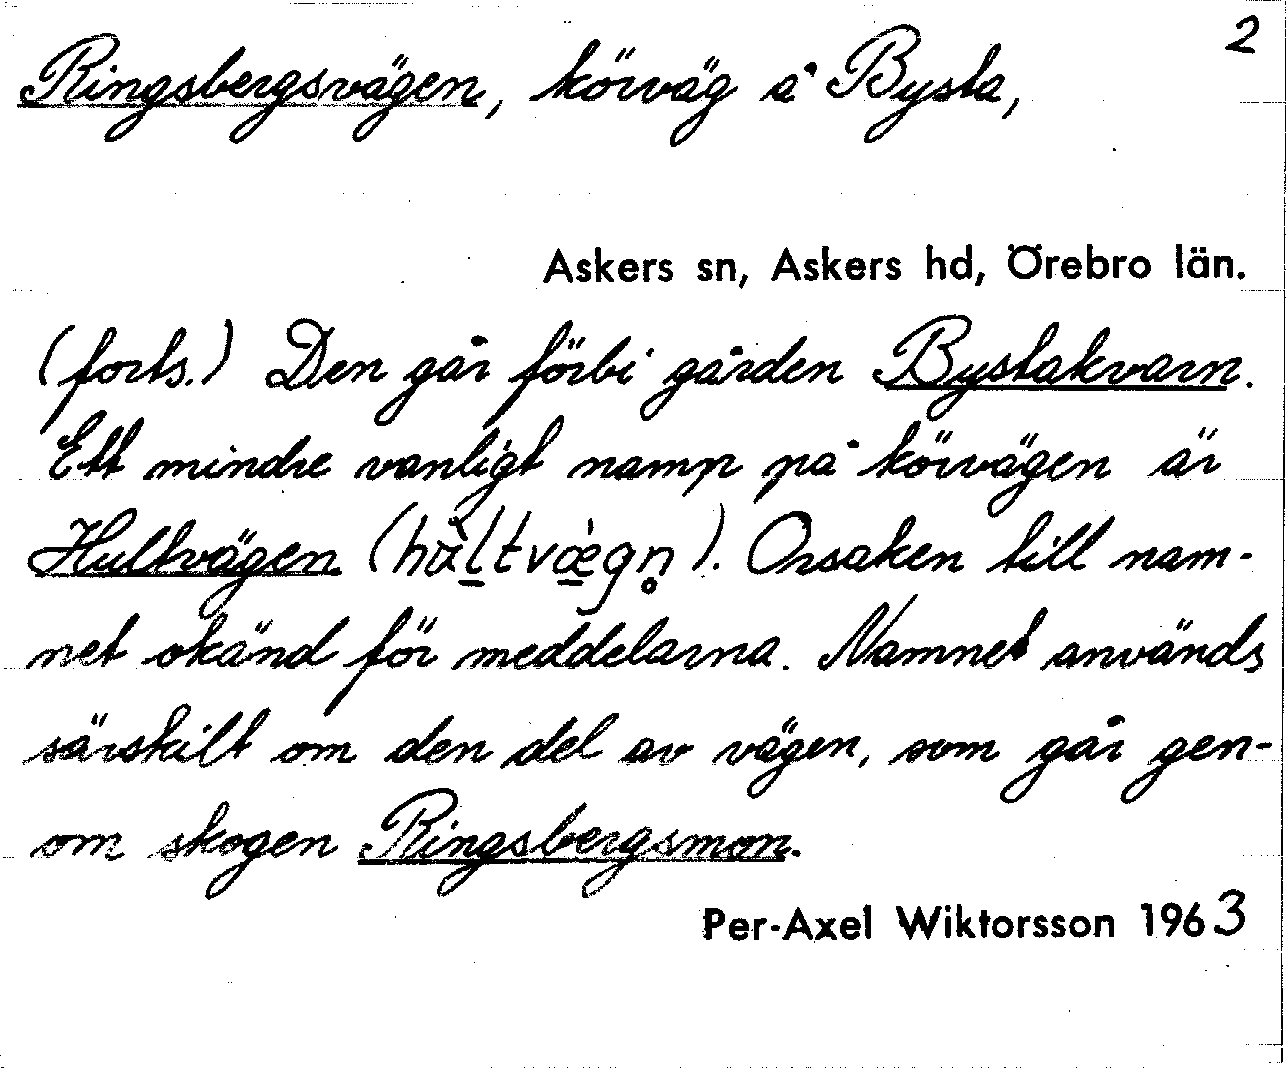 2
Ringsbergsvägen, körväg å Bysta,
Askers sn, Askers hd, Örebro län.
(forts.) Den går förbi gården Bystakvarn.
Ett mindre vanligt namn på körvägen är
Hultvägen (). Orsaken till nam-
net okänd för meddelarna. Namnet används
särskilt om den del av vägen, som går gen-
om skogen Ringsbergsmon.
Per-Axel Wiktorsson 1963